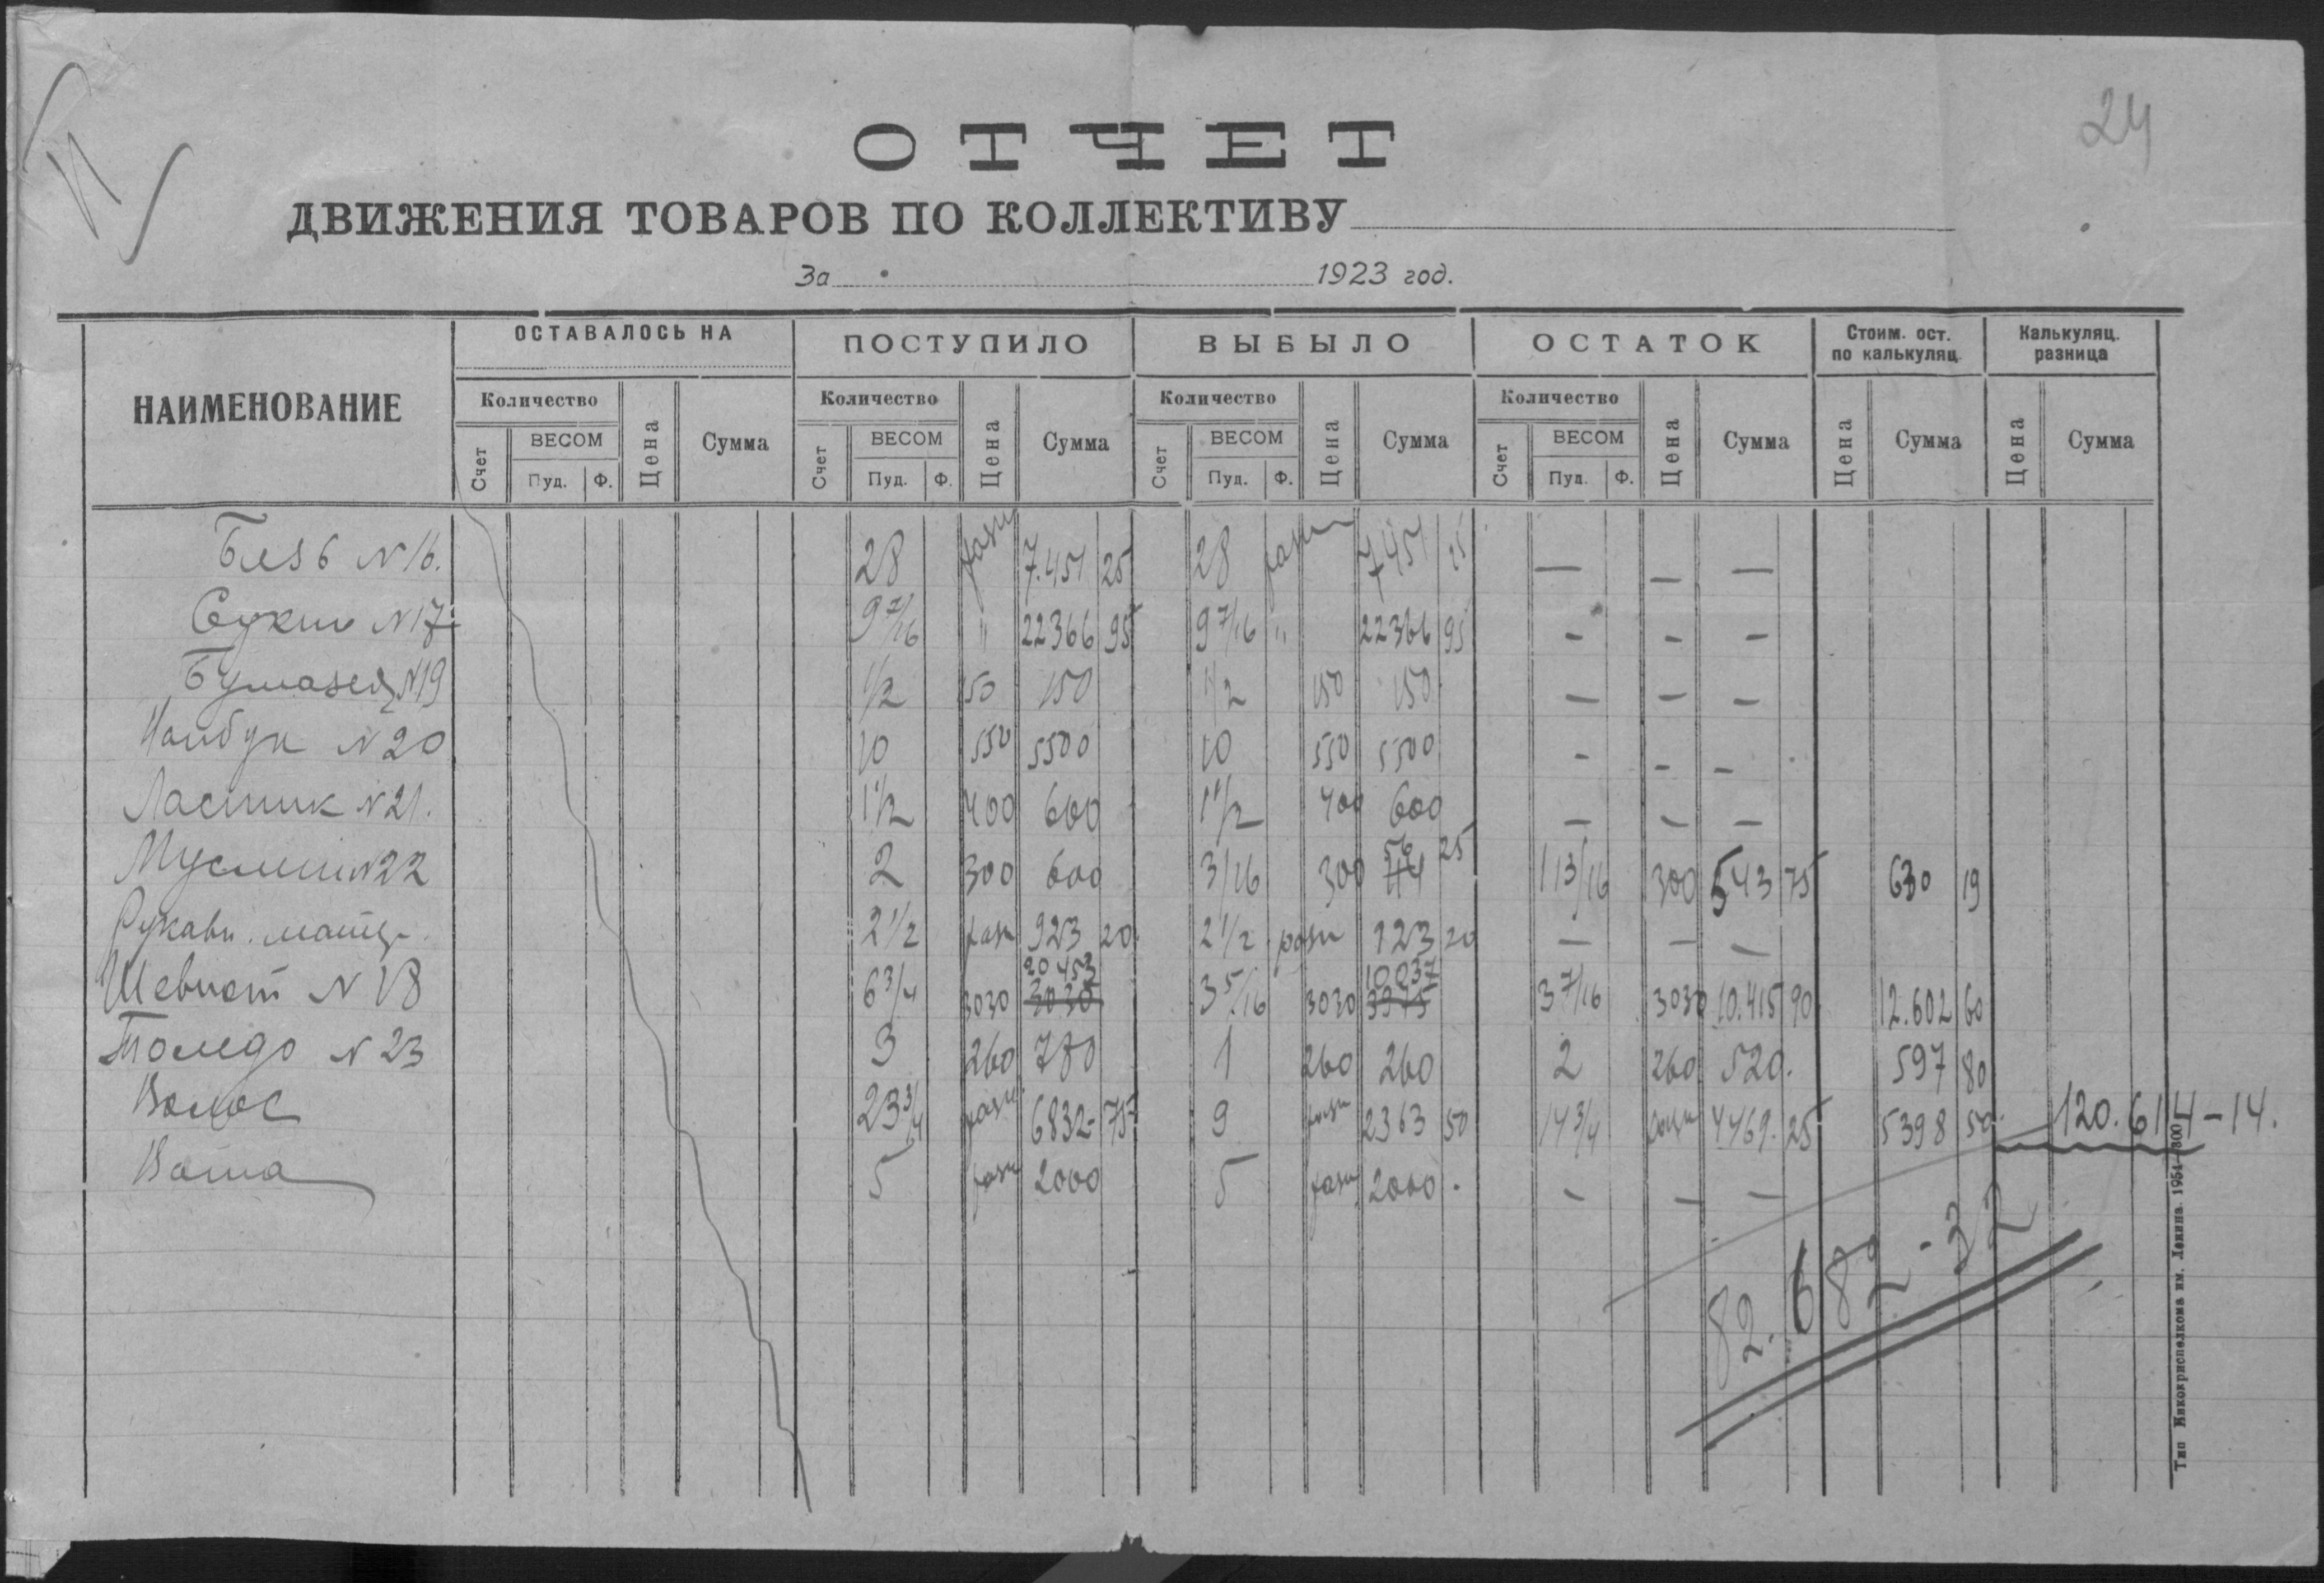 24
ОТЧЕТ
ДВИЖЕНИЯ ТОВАРОВ ПО КОЛЛЕКТИВУ
За 1923 год.
НАИМЕНОВАНИЕ ОСТАВАЛОСЬ НА ПОСТУПИЛО ВЫБЫЛО ОСТАТОК Стоим. ост. по калькуляц. Калькуляц. разница
Количество Цена Сумма Количество Цена Сумма Количество Цена Сумма Количество Цена Сумма Цена Сумма Цена Сумма
Счет ВЕСОМ Счет ВЕСОМ Счет ВЕСОМ Счет ВЕСОМ
Пуд. Ф. Пуд. Ф. Пуд. Ф. Пуд. Ф.
Бязь N 16. 28 разн 7.451 25 28 разн 7451 25 — — —
Сукно N 17 9 7/16 " 22366 95 9 7/16 " 22366 95 - - -
Бумазея N19 1/2 150 150 1/2 150 150 — — —
N 20 10 550 5500 10 550 5500 - - -
Ластик N 21. 1 1/2 400 600 1 1/2 400 600 — — —
Муслин N22 2 300 600 3/16 300 56 25 1 13/16 300 543 75 630 19
Рукавн. матер. 2 1/2 разн 923 20 2 1/2 разн 923 20 — — —
Шевиот N 18 6 3/4 3030 20453 3030 3 5/16 3030 10037 3975 3 7/16 3030 10.415 90 12.602 60
Толедо N 23 3 260 780 1 260 260 2 260 520. 597 80
Волос 23 3/4 разн 6832 75 9 разн 2363 50 14 3/4 разн 4469. 25 5398 50 120.614-14.
Вата 5 разн 2000 5 разн 2000. - - -
82.682-32
Тип Инкокрисполкома им. Ленина. 1951—800